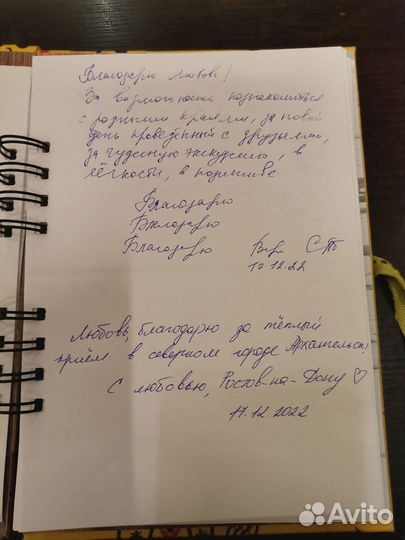 Благодарю Любовь!
За возможность познакомиться
с разными краями, за новый
день проведённый с друзьями,
за чудесную экскурсию, в
лёгкости, в позитиве
Благодарю
Благодарю
Благодарю СПб
10.12.22
Любовь благодарю за тёплый
приём в северном городе Архангельск!
С любовью, Ростов-на-Дону ♡
17.12.2022
Avito